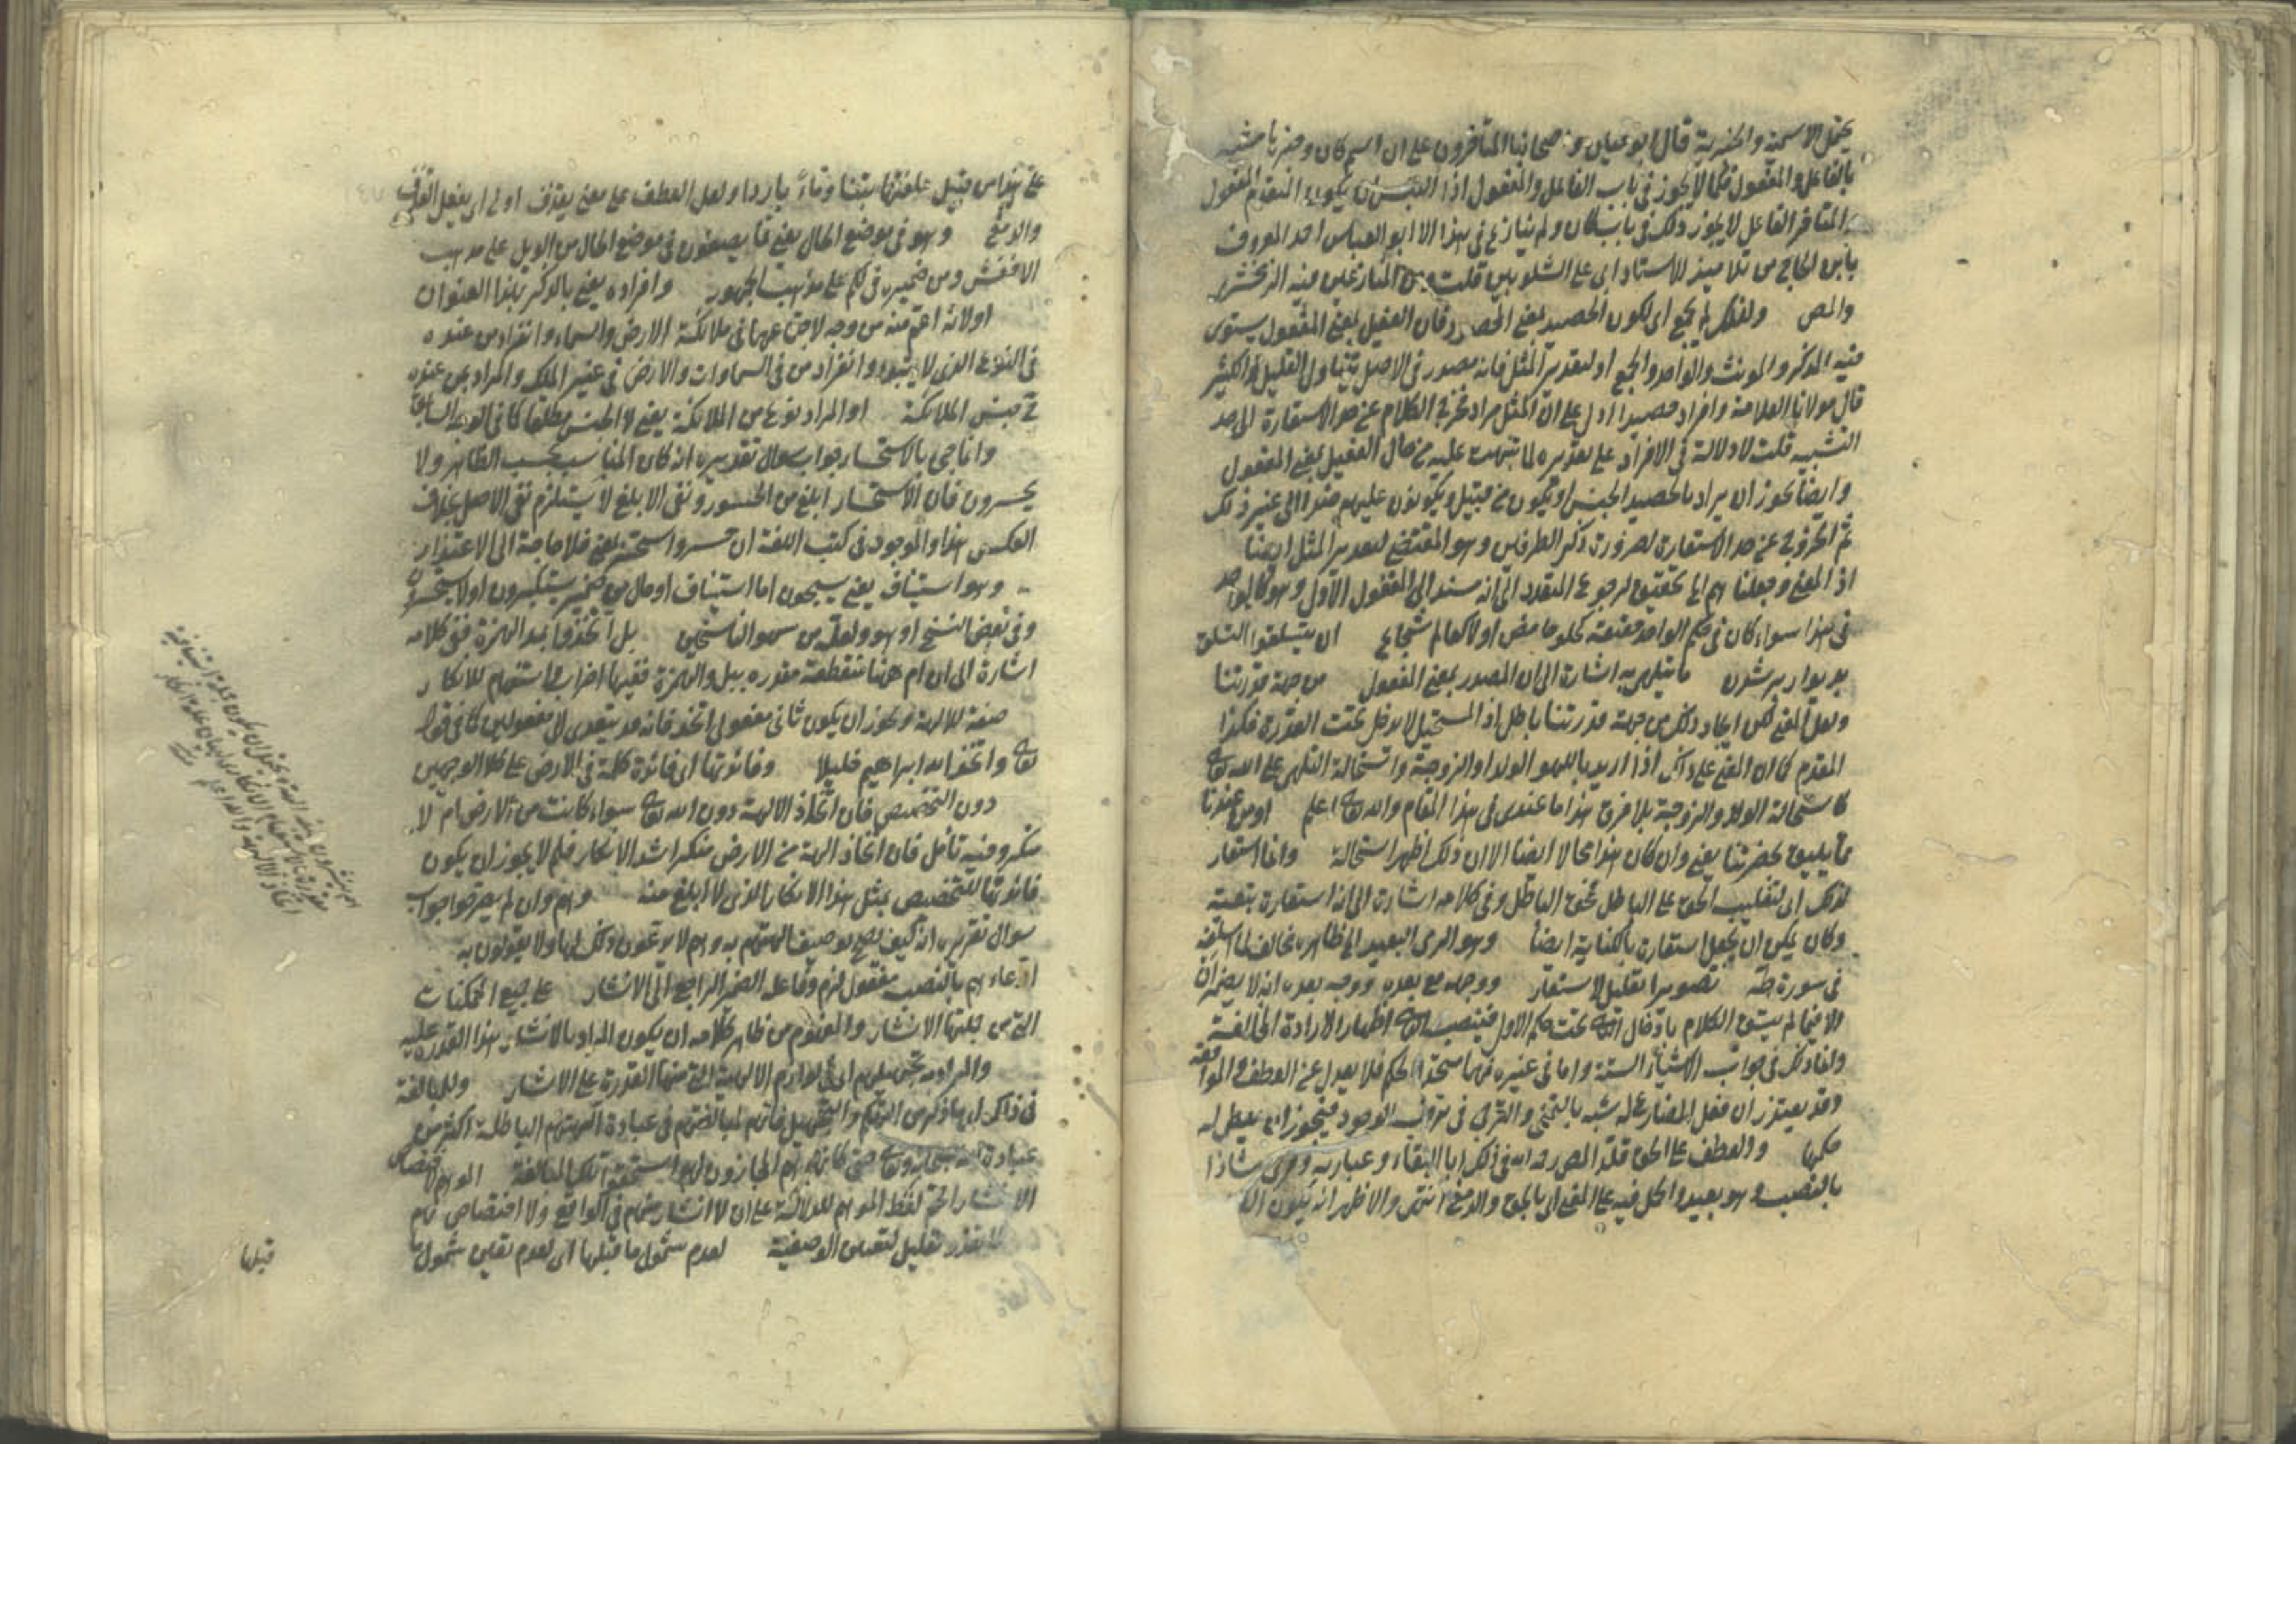 يحتمل الاسمية والخبرية قال ابو حيان و اصحابنا المتأخرون على ان اسم كان وخبرها مشبه
بالفاعل والمفعول فكما لا يجوز في باب الفاعل والمفعول اذا التبس ان يكون المتقدم المفعول
والمتأخر الفاعل لا يجوز ذلك في باب كان ولم ينازع في هذا الا ابو العباس احمد المعروف
بابن الحاج من تلاميذ الاستاد ابي على الشلوبين قلت ومن المنازعين فيه الزمخشري
والمص ولذلك لم يجمع اى لكون الحصيد بمعنى المحصود فان الفعيل بمعنى المفعول يستوى
فيه المذكر والمونث والواحد والجمع او لتقدير المثل فانه مصدر في الاصل يتناول القليل والكثير
قال مولانا العلامة وافراد حصيدا ادل على ان المثل مراد فخرج الكلام عن حد الاستعارة الى حد
التشبيه قلت لا دلالة في الافراد على تقديره لما نبهت عليه من حال الفعيل بمعنى المفعول
وايضا يجوز ان يراد بالحصيد الجنس او يكون من قبيل ويكونون عليهم ضدا الى غير ذلك
ثم الخروج عن حد الاستعارة لضرورة ذكر الطرفين وهو المقتضى لتقدير المثل ايضا
اذ المعنى وجعلنا هم اياه تحقيق لرجوع المتعدد الى انه مسند الى المفعول الاول وهو كالواحد
في هذا سواء كان في حكم الواحد حقيقة كحلو حامض او لا كعالم شجاع ان يتسلقوا التسلق
بديوار بر شدن ما يتلهى به اشارة الى ان المصدر بمعنى المفعول من جهة قدرتنا
ولعل المعنى لكن ايجاد ذلك من جهة قدرتنا باطل اذ المستحيل لا يدخل تحت القدرة فكذا
المقدم كما ان المعنى على ذلك اذا اريد باللهو الولد او الزوجة واستحالة التلهى على الله تعالى
كاستحالة الولد والزوجة بلا فرق هذا ما عندى في هذا المقام والله تعالى اعلم او من عندنا
مما يليق بحضرتنا يعنى وان كان هذا محالا ايضا الا ان ذلك اظهر استحالة وانما استعار
لذلك اى لتغليب الحق على الباطل محق الباطل وفي كلامه اشارة الى انه استعارة تبعية
وكان يمكن ان يجعل استعارة بالكناية ايضا وهو الرمى البعيد الى ظاهره مخالف لما اسلفه
في سورة طه تصويرا تعليل لاستعار ووجهه مع بعده ووجه بعده انه لا يضمر ان
الا فيما لم يسق الكلام بادخال الثاني تحت حكم الاول فينصب الثاني اظهارا لارادة المخالفة
وانما ذلك في جواب الاشياء الستة واما في غيره فهما متحدا الحكم فلا يعدل عن العطف والموافقة
وقد يعتذر ان فعل المضارع له شبه بالتمنى والترجى في ترقب الوجود فيجوز ان يعطى له
حكمها والعطف على الحق قلد المص رحمه الله في ذلك ابا البقاء وعبارته وقرئ شاذا
بالنصب وهو بعيد والحمل فيه على المعنى اى بالحق والدمغ انتهى والاظهر انه يكون
على هذا من قبيل علفتها تبنا وماءً باردا ولعل العطف على معنى يقذف اولى اى يفعل القذف
والدمغ وهو في موضع الحال يعنى مما يصفون في موضع الحال من الويل على مذهب
الاخفش ومن ضميره في لكم على مذهب الجمهور وافراده يعنى بالذكر بهذا العنوان
او لانه اعم منه من وجه لاجتماعهما في ملائكة الارض والسماء وانفراد من عنده
في النوع الذى لا يتبوء وانفراد من في السماوات والارض في غير الملك والمراد بمن عنده
ح جنس الملائكة او المراد نوع من الملائكة يعنى لا الجنس مطلقا كما في الوجه السابق
وانما جئ بالاستحسار جواب سوال تقديره انه كان المناسب بحسب الظاهر ولا
يحسرون فان الاستحسار ابلغ من الحسور ونفى الابلغ لا يستلزم نفى الاصل بخلاف
العكس هذا والموجود في كتب اللغة ان حسر واستحسر بمعنى فلا حاجة الى الاعتذار
وهو استيناف يعنى يسبحون اما استيناف او حال من ضمير يستكبرون او لا يستحسرون
وفي بعض النسخ او هو ولعله من سهو الناسخين بل اتخذوا بمد الهمزة ففى كلامه
اشارة الى ان ام ههنا منقطعة مقدره ببل والهمزة ففيها اضراب واستفهام للانكار
صفة لالهة ويجوز ان يكون ثانى مفعولى اتخذ فانه قد يتعدى لا مفعولين كما في قوله
تعالى واتخذ الله ابراهيم خليلا وفائدتها اى فائدة كلمة في الارض على كلا الوجهين
دون التخصيص فان اتخاذ الالهة دون الله تعالى سواء كانت من الارض ام لا
منكر وفيه تأمل فان اتخاذ الهة من الارض منكر اشد الانكار فلم لا يجوز ان يكون
فائدتها للتخصيص بمثل هذا الانكار الذى لا ابلغ منه وهم وان لم يصرحوا جواب
سوال تقريره انه كيف يصح توصيف الهتهم به وهم لا يدعون ذلك لها ولا يقولون به
ادعاءهم بالنصب مفعول لزم وفاعله الضمير الراجع الى الانشار على جميع الممكنات
التى من جملتها الانشار والمفهوم من ظاهر كلامه ان يكون المراد بالانشار هذا القدرة عليه
والمراد به تجهيلهم اى في لوازم الالهية التى منها القدرة على الانشار وللمبالغة
في ذلك اى ما ذكر من التهكم والتجهيل فانهم لمبالغتهم في عبادة آلهتهم الباطلة اكثر من
عبادة الله سبحانه وتعالى حتى كانهم هم الحائزون لها استحقوا تلك المبالغة الموهم لاختصاص
الانشار اقحم لفظ الموهم للدلالة على ان لا انشار منهم في الواقع ولا اختصاص بهم
لتعذر تعليل لتعين الوصفية لعدم شمول ما قبلها اى لعدم تعين شمول ما
قبلها